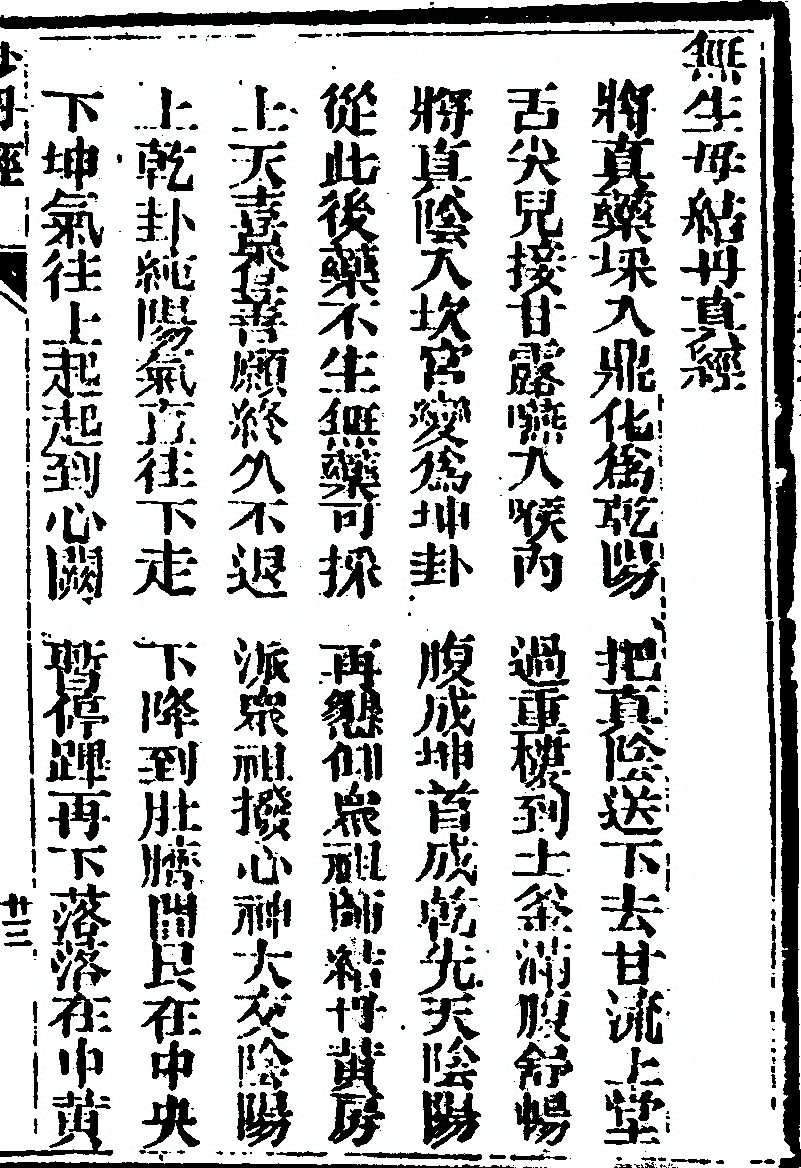 無生母結丹真經
將真藥採入鼎化為乾陽 把真陰送下去甘流上堂
舌尖兒接甘露嚥入喉內 過重樓到土釜滿腹舒暢
將真陰入坎宮變為坤卦 腹成坤首成乾先天陰陽
從此後藥不生無藥可採 再懇仰眾祖師結丹黃房
上天喜眾皇善願終久不退 派眾祖撥心神大交陰陽
上乾卦純陽氣直往下走 下降到肚臍間艮在中央
下坤氣往上起起到心闕 暫停蹕再下落落在中黃
丹經
廿三